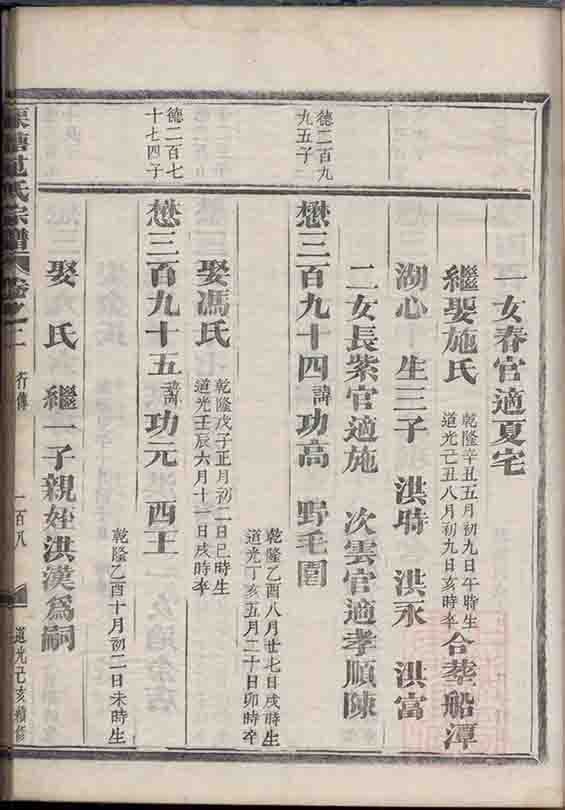 一女春官適夏宅
繼娶施氏 乾隆辛丑五月初九日午時生 道光己丑八月初九日亥時卒 合塟船潭
湖心 生三子 洪時 洪永 洪富
二女長紫官適施 次雲官適孝順陳
德二百九
九五子
懋三百九十四諱功高 野毛圍
乾隆乙酉八月廿七日戌時生
道光丁亥五月二十日卯時卒
娶馮氏 乾隆戊子正月初二日巳時生 道光壬辰六月十一日戌時卒
德二百七
十七四子
懋三百九十五諱功元 四王
乾隆乙酉十月初二日未時生
娶 氏 繼一子親姪洪漢爲嗣
范氏宗譜 卷之二 行傳 一百八 道光己亥續修